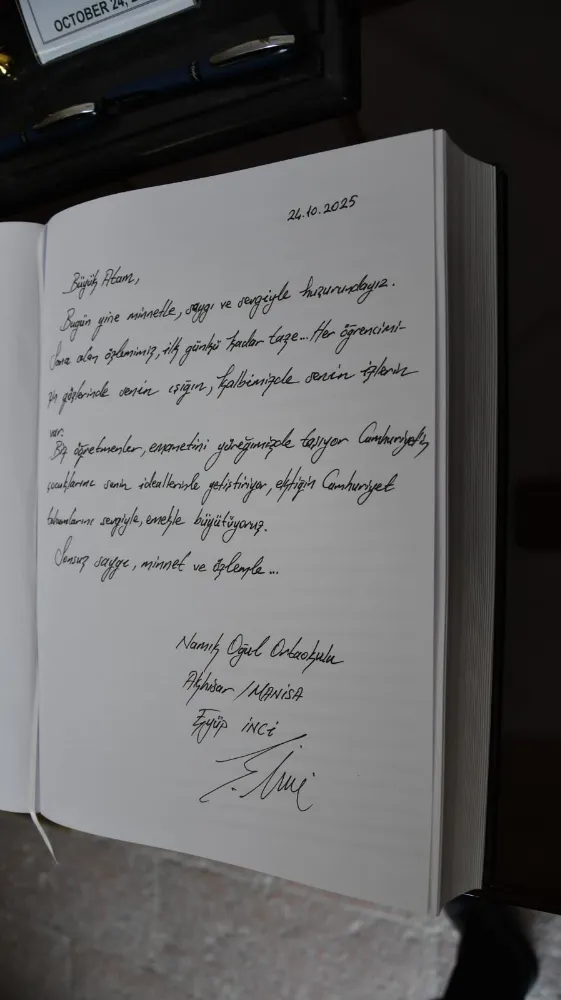 OCTOBER 24, 2
24.10.2025
Büyük Atam,
Bugün yine minnetle, saygı ve sevgiyle huzurundayız.
Sana olan özlemimiz, ilk günkü kadar taze... Her öğrencimi-
zin gözlerinde senin ışığın, kalbimizde senin izlerin
var.
Biz öğretmenler, emanetini yüreğimizde taşıyor Cumhuriyetin
çocuklarını senin ideallerinle yetiştiriyor, ektiğin Cumhuriyet
tohumlarını sevgiyle, emekle büyütüyoruz.
Sonsuz saygı, minnet ve özlemle...
Namık Oğul Ortaokulu
Akhisar / MANİSA
Eyüp İNCİ
E. İnci